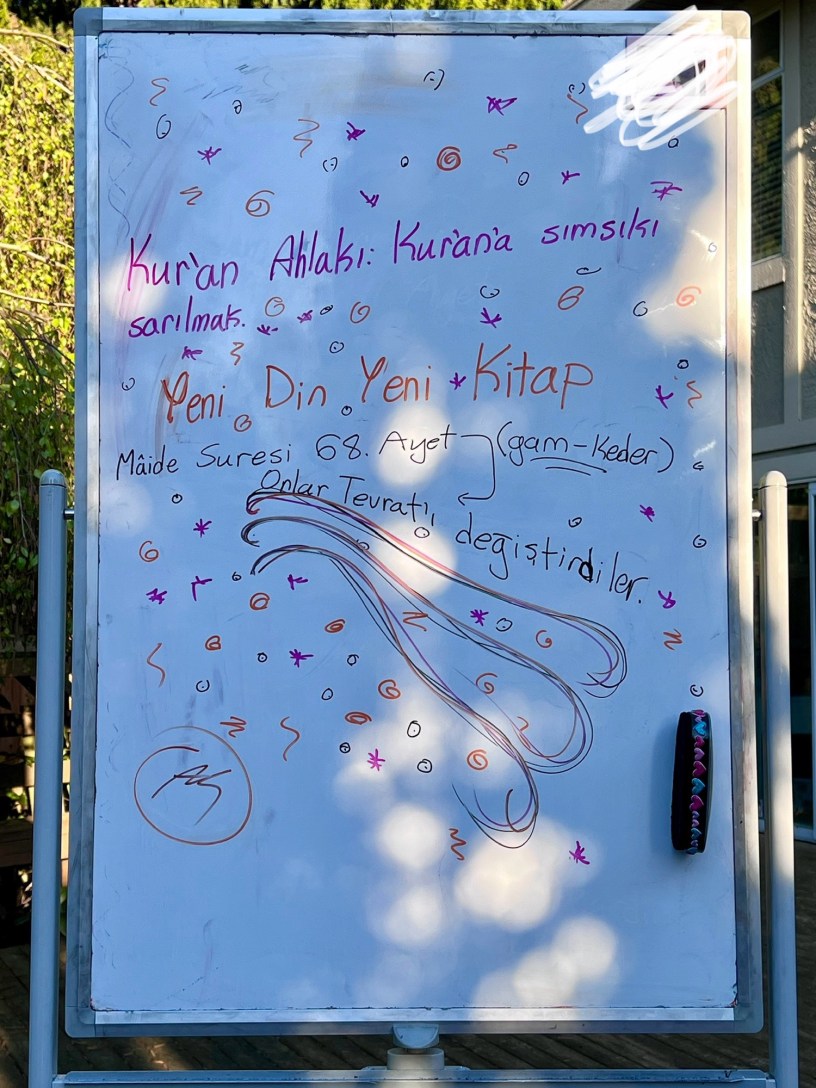 Kur'an Ahlakı: Kur'an'a sımsıkı
sarılmak.
Yeni Din Yeni Kitap
Mâide Suresi 68. Ayet (gam-Keder)
Onlar Tevratı, değiştirdiler.